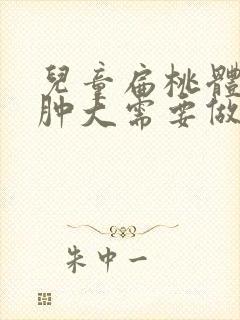 兒童扁桃體
肿大需要做
朱中一